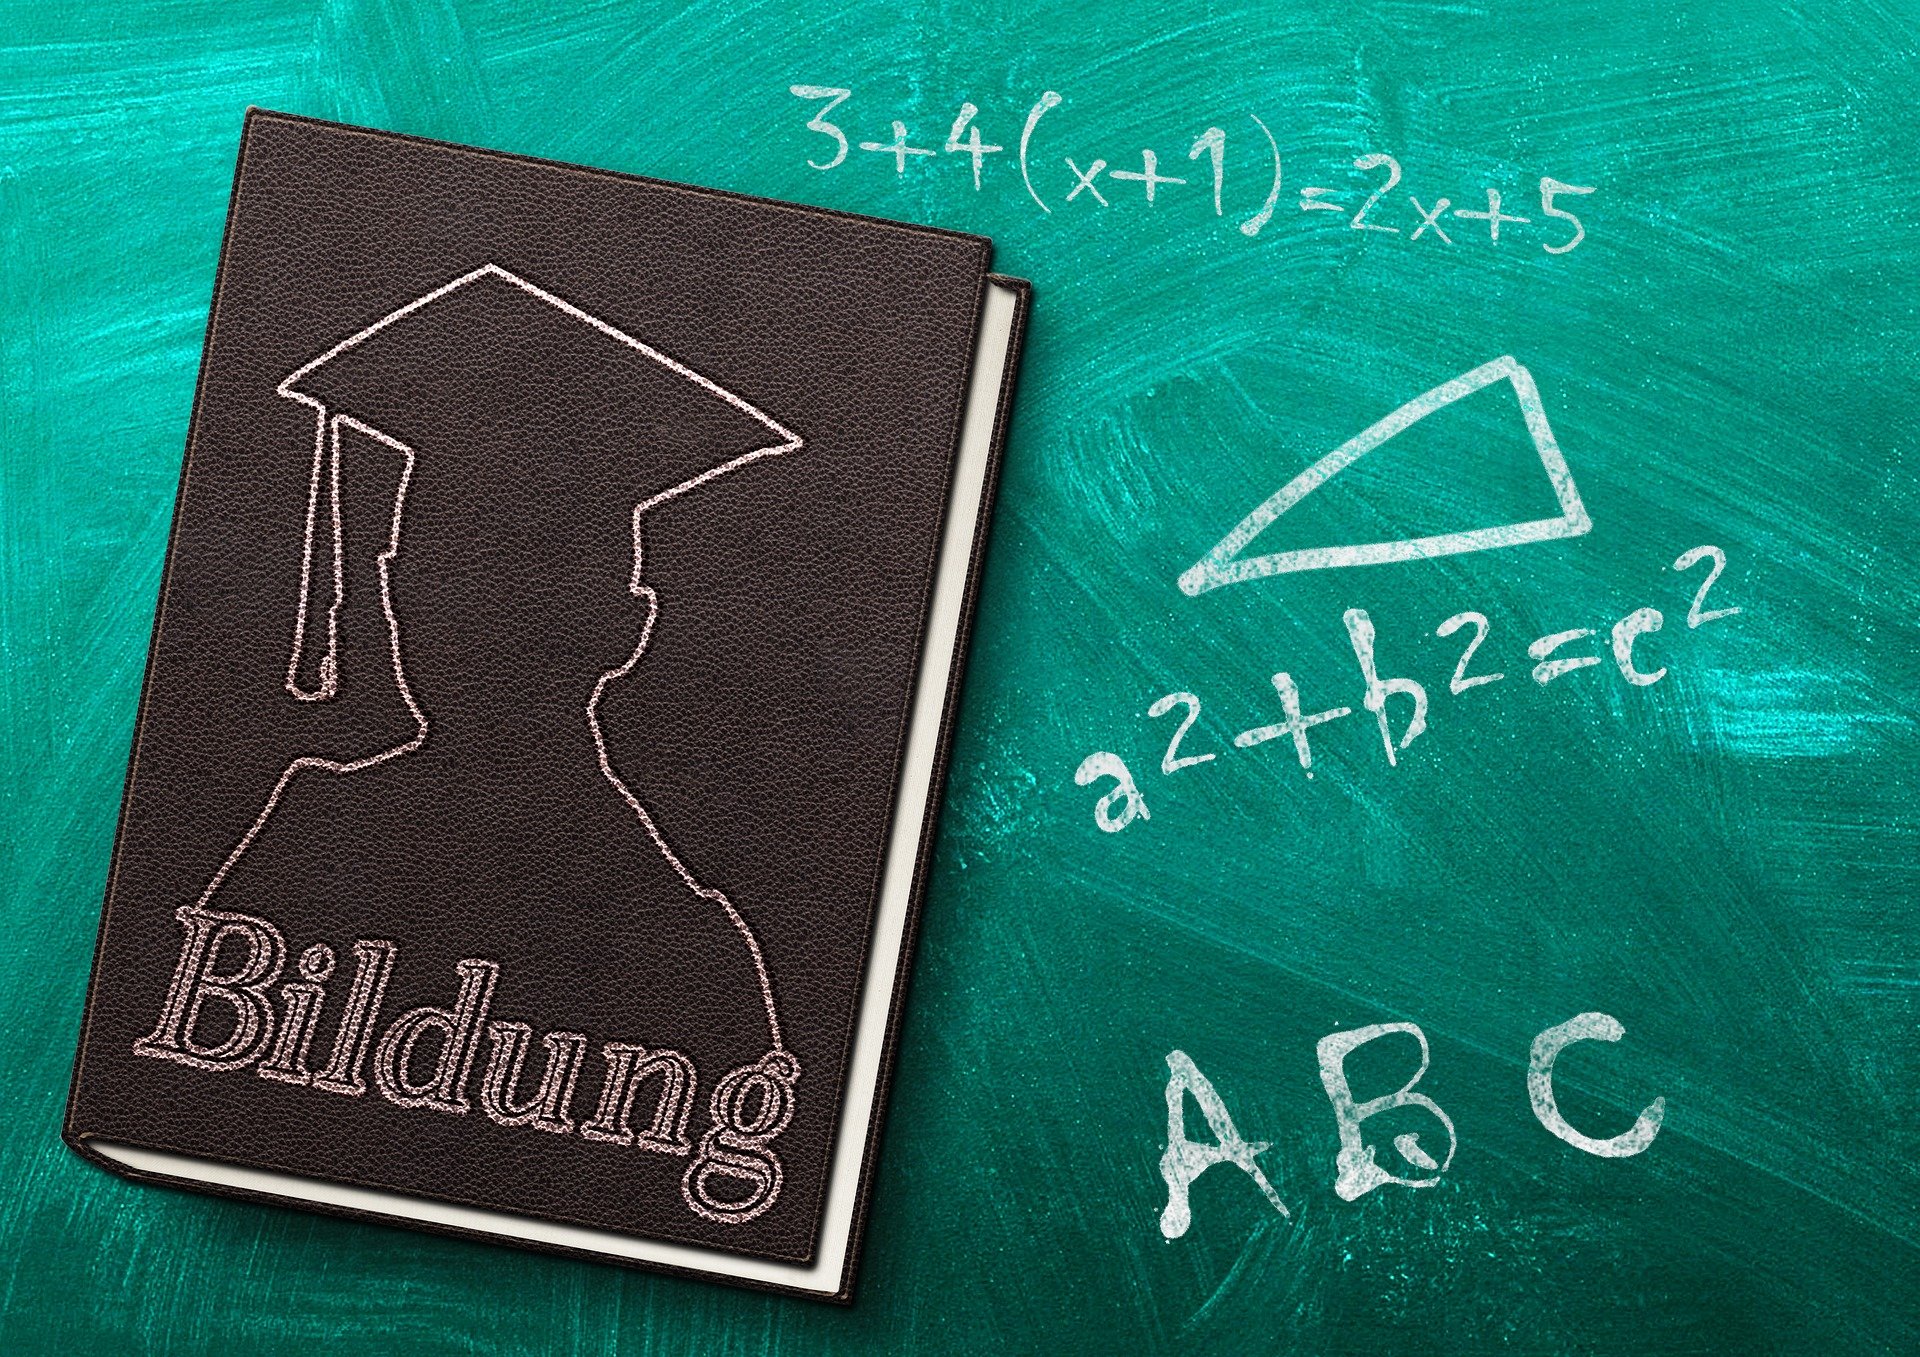 Bildung
3+4(x+1)=2x+5
a²+b²=c²
A B C